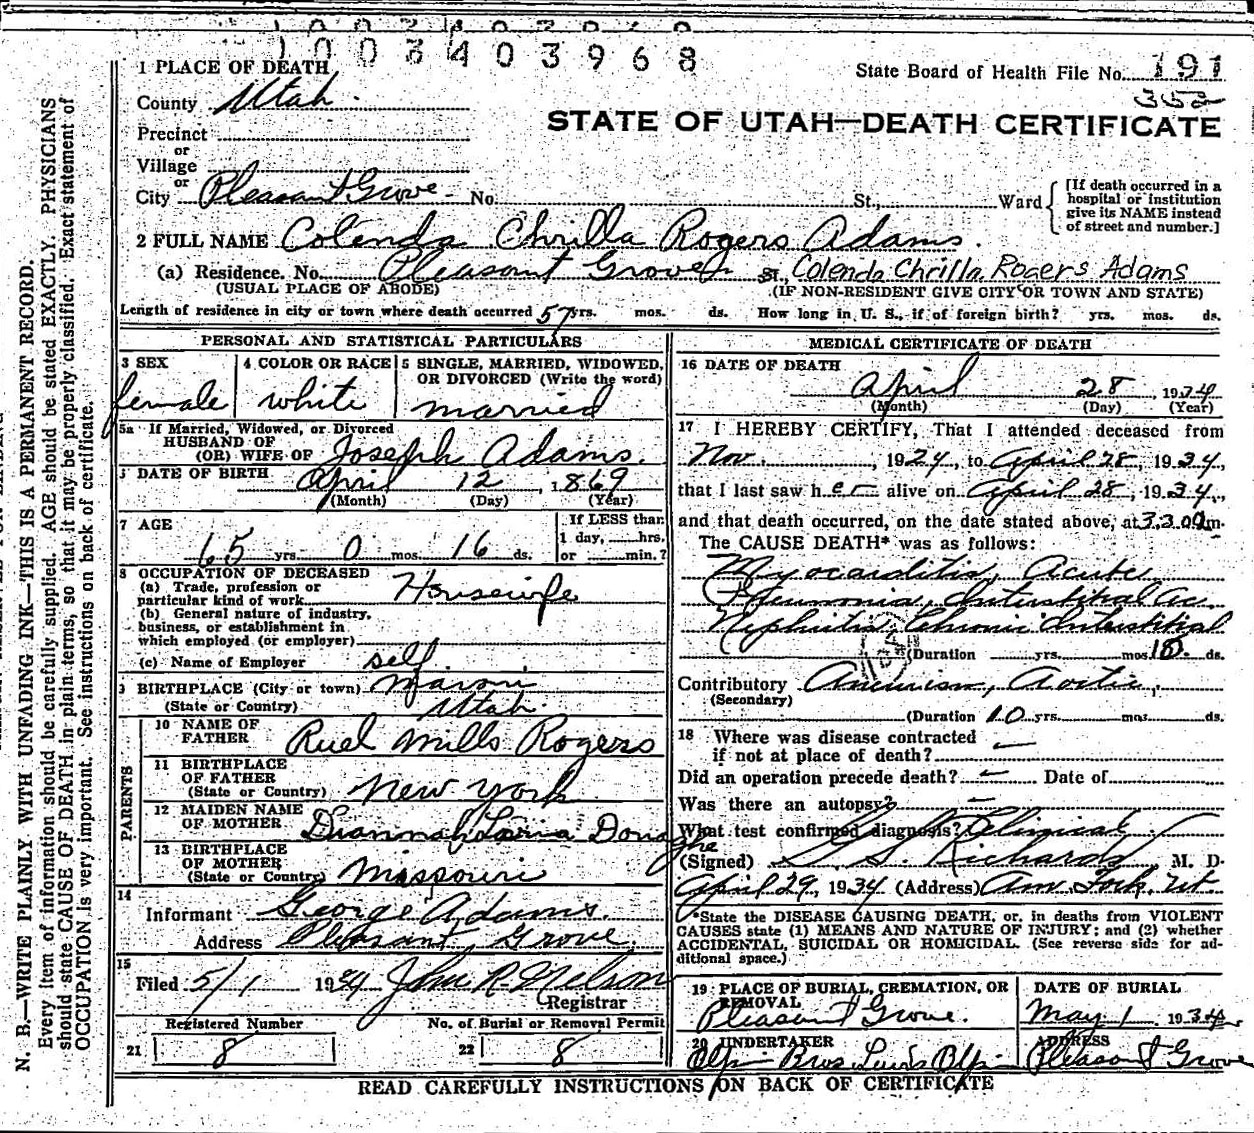 1003403968
1 PLACE OF DEATH
State Board of Health File No. 191
352
County Utah
STATE OF UTAH—DEATH CERTIFICATE
Precinct
or
Village
or
City Pleasant Grove No. St., Ward
[If death occurred in a
hospital or institution
give its NAME instead
of street and number.]
2 FULL NAME Colenda Chrilla Rogers Adams.
(a) Residence. No. Pleasant Grove St., Colenda Chrilla Rogers Adams
(USUAL PLACE OF ABODE) (IF NON-RESIDENT GIVE CITY OR TOWN AND STATE)
Length of residence in city or town where death occurred 57 yrs. mos. ds. How long in U. S., if of foreign birth? yrs. mos. ds.
PERSONAL AND STATISTICAL PARTICULARS
3 SEX
female
4 COLOR OR RACE
white
5 SINGLE, MARRIED, WIDOWED,
OR DIVORCED (Write the word)
married
5a If Married, Widowed, or Divorced
HUSBAND OF
(OR) WIFE OF Joseph Adams.
DATE OF BIRTH April 12, 1869
(Month) (Day) (Year)
7 AGE
65 yrs. 0 mos. 16 ds.
If LESS than
1 day, hrs.
or min.?
8 OCCUPATION OF DECEASED
(a) Trade, profession or
particular kind of work Housewife
(b) General nature of industry,
business, or establishment in
which employed (or employer)
(c) Name of Employer self
BIRTHPLACE (City or town)
(State or Country) Utah.
PARENTS
10 NAME OF
FATHER Ruel Mills Rogers
11 BIRTHPLACE
OF FATHER
(State or Country) New York
12 MAIDEN NAME
OF MOTHER
13 BIRTHPLACE
OF MOTHER
(State or Country) Missouri
14
Informant George A. Adams.
Address Pleasant Grove.
15
Filed 5/1 1934
Registrar
Registered Number
21 8
No. of Burial or Removal Permit
22 8
MEDICAL CERTIFICATE OF DEATH
16 DATE OF DEATH
April 28, 1934
(Month) (Day) (Year)
17 I HEREBY CERTIFY, That I attended deceased from
Nov. , 1924, to April 28, 1934,
that I last saw her alive on April 28, 1934,
and that death occurred, on the date stated above, at m.
The CAUSE DEATH* was as follows:
Myocarditis, Acute
Pneumonia, Interstitial Ac.
Nephritis Chronic Interstitial
(Duration yrs. mos. 10. ds.
Contributory Aortic,
(Secondary)
(Duration 10 yrs. mos. ds.
18 Where was disease contracted
if not at place of death? —
Did an operation precede death? — Date of
Was there an autopsy? —
What test confirmed diagnosis? Clinical
(Signed) Richards, M. D.
April 29, 1934 (Address) Am. Fork, Ut.
*State the DISEASE CAUSING DEATH, or, in deaths from VIOLENT
CAUSES state (1) MEANS AND NATURE OF INJURY; and (2) whether
ACCIDENTAL, SUICIDAL OR HOMICIDAL. (See reverse side for ad-
ditional space.)
19 PLACE OF BURIAL, CREMATION, OR
REMOVAL
Pleasant Grove.
DATE OF BURIAL
May 1 1934
20 UNDERTAKER
Olpin Bros Lewis Olpin
ADDRESS
Pleasant Grove
READ CAREFULLY INSTRUCTIONS ON BACK OF CERTIFICATE
N. B.—WRITE PLAINLY WITH UNFADING INK—THIS IS A PERMANENT RECORD.
Every item of information should be carefully supplied. AGE should be stated EXACTLY. PHYSICIANS
should state CAUSE OF DEATH in plain terms, so that it may be properly classified. Exact statement of
OCCUPATION is very important. See instructions on back of certificate.